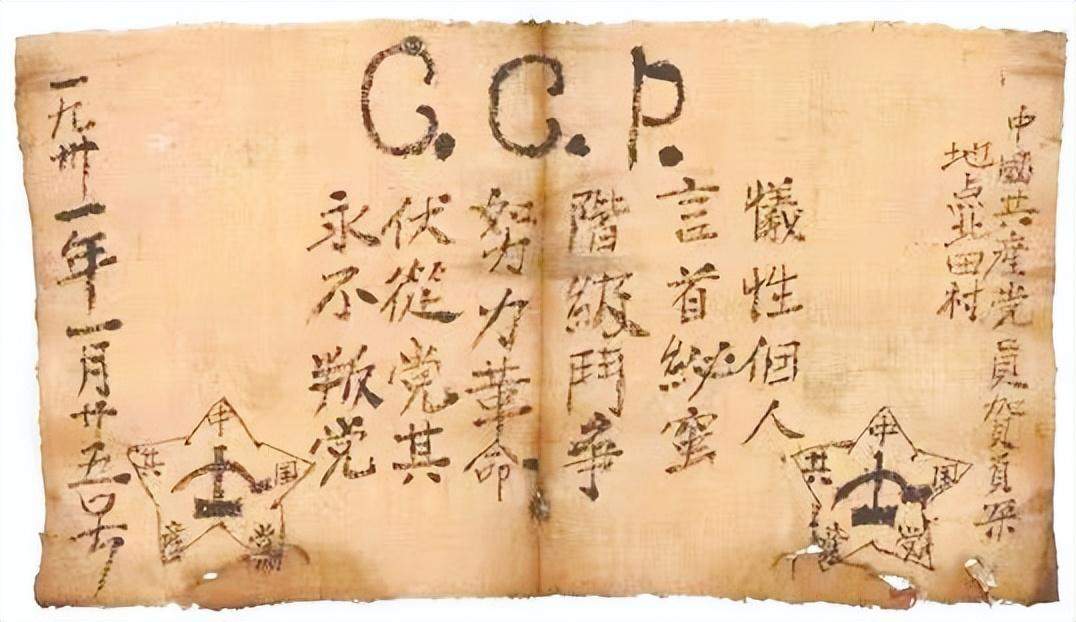 C.C.P.
中國共産党員賀頁朵
地点北田村
犠性個人
言首秘蜜
階級鬥爭
努力革命
伏從党其
永不叛党
一九卅一年一月廿五口
中国共產党
中国共產党